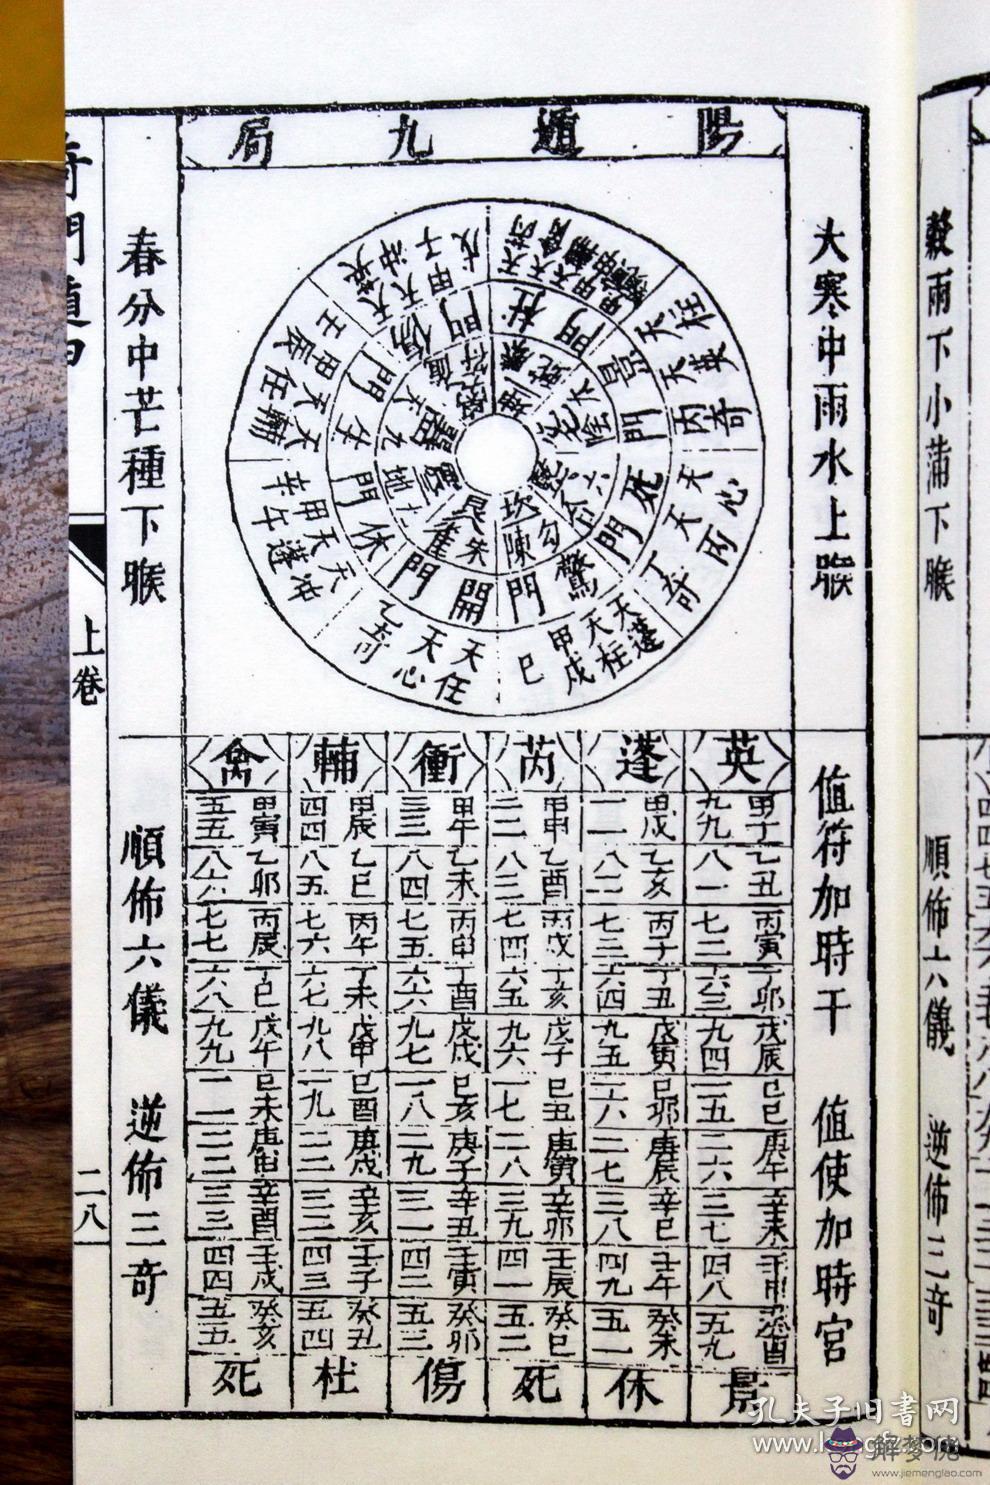 陽遁九局
大寒中雨水上㬋
值符加時干 值使加時宮
英
甲子 九九
乙丑 八一
丙寅 七二
丁卯 六三
戊辰 九四
己巳 一五
庚午 二六
辛未 三七
壬申 四八
癸酉 五九
景
蓬
甲戌 一一
乙亥 八二
丙子 七三
丁丑 六四
戊寅 九五
己卯 一六
庚辰 二七
辛巳 三八
壬午 四九
癸未 五一
休
芮
甲申 二二
乙酉 八三
丙戌 七四
丁亥 六五
戊子 九六
己丑 一七
庚寅 二八
辛卯 三九
壬辰 四一
癸巳 五二
死
衝
甲午 三三
乙未 八四
丙申 七五
丁酉 六六
戊戌 九七
己亥 一八
庚子 二九
辛丑 三一
壬寅 四二
癸卯 五三
傷
輔
甲辰 四四
乙巳 八五
丙午 七六
丁未 六七
戊申 九八
己酉 一九
庚戌 二一
辛亥 三二
壬子 四三
癸丑 五四
杜
禽
甲寅 五五
乙卯 八六
丙辰 七七
丁巳 六八
戊午 九九
己未 一一
庚申 二二
辛酉 三三
壬戌 四四
癸亥 五五
死
春分中芒種下㬋
順佈六儀 逆佈三奇
上卷
二八
穀雨下小滿下㬋
順佈六儀 逆佈三奇
天柱
天英
丙奇
天心
天
丁奇
天蓬
天柱
甲戌
己
天任
天心
乙奇
天冲
天蓬
甲午
辛
天輔
天任
甲辰
壬
天英
天冲
甲子
戊
杜門
景門
死門
驚門
開門
休門
生門
傷門
值符
太陰
六合
勾陳
朱雀
九地
九天
坎
艮
孔夫子旧書网
解梦佬
www.jiemenglao.com